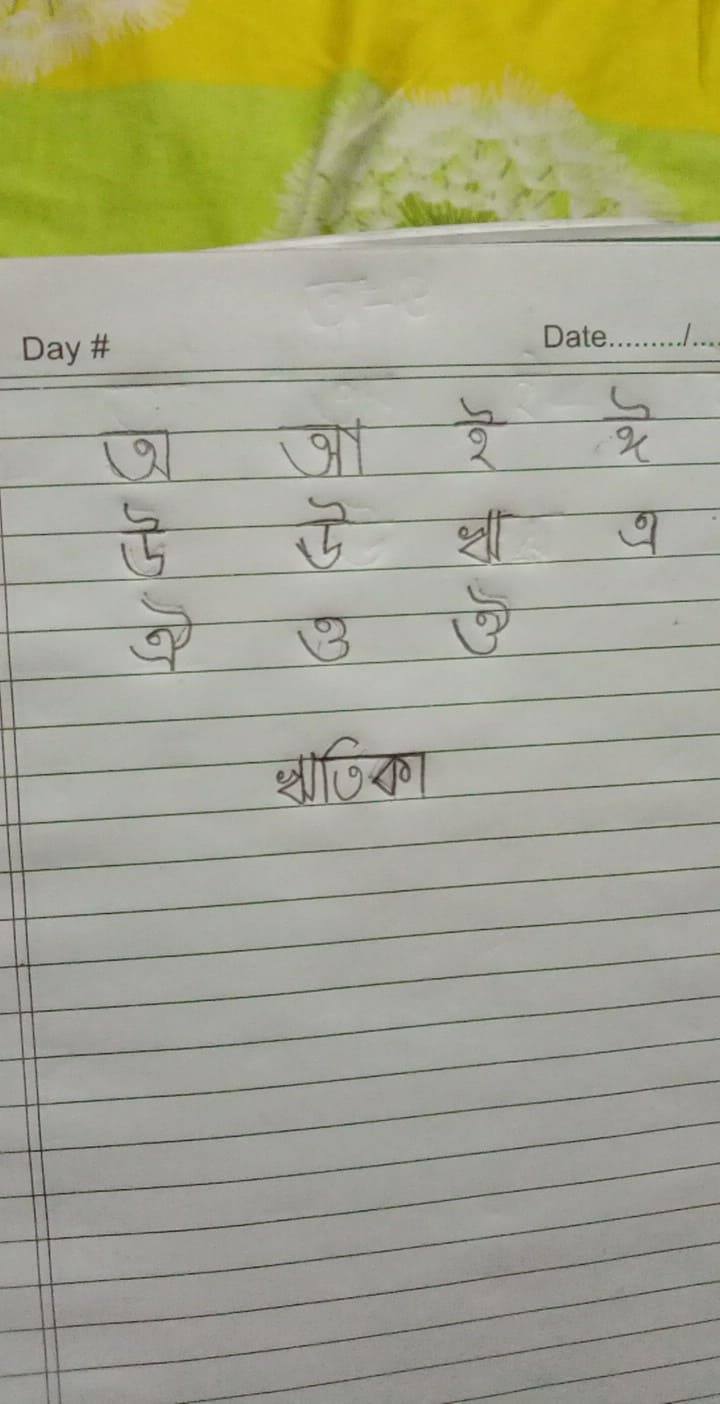 Day # Date........./....
অ আ ই ঈ
উ ঊ ঋ এ
ঐ ও ঔ
ঋতিকা